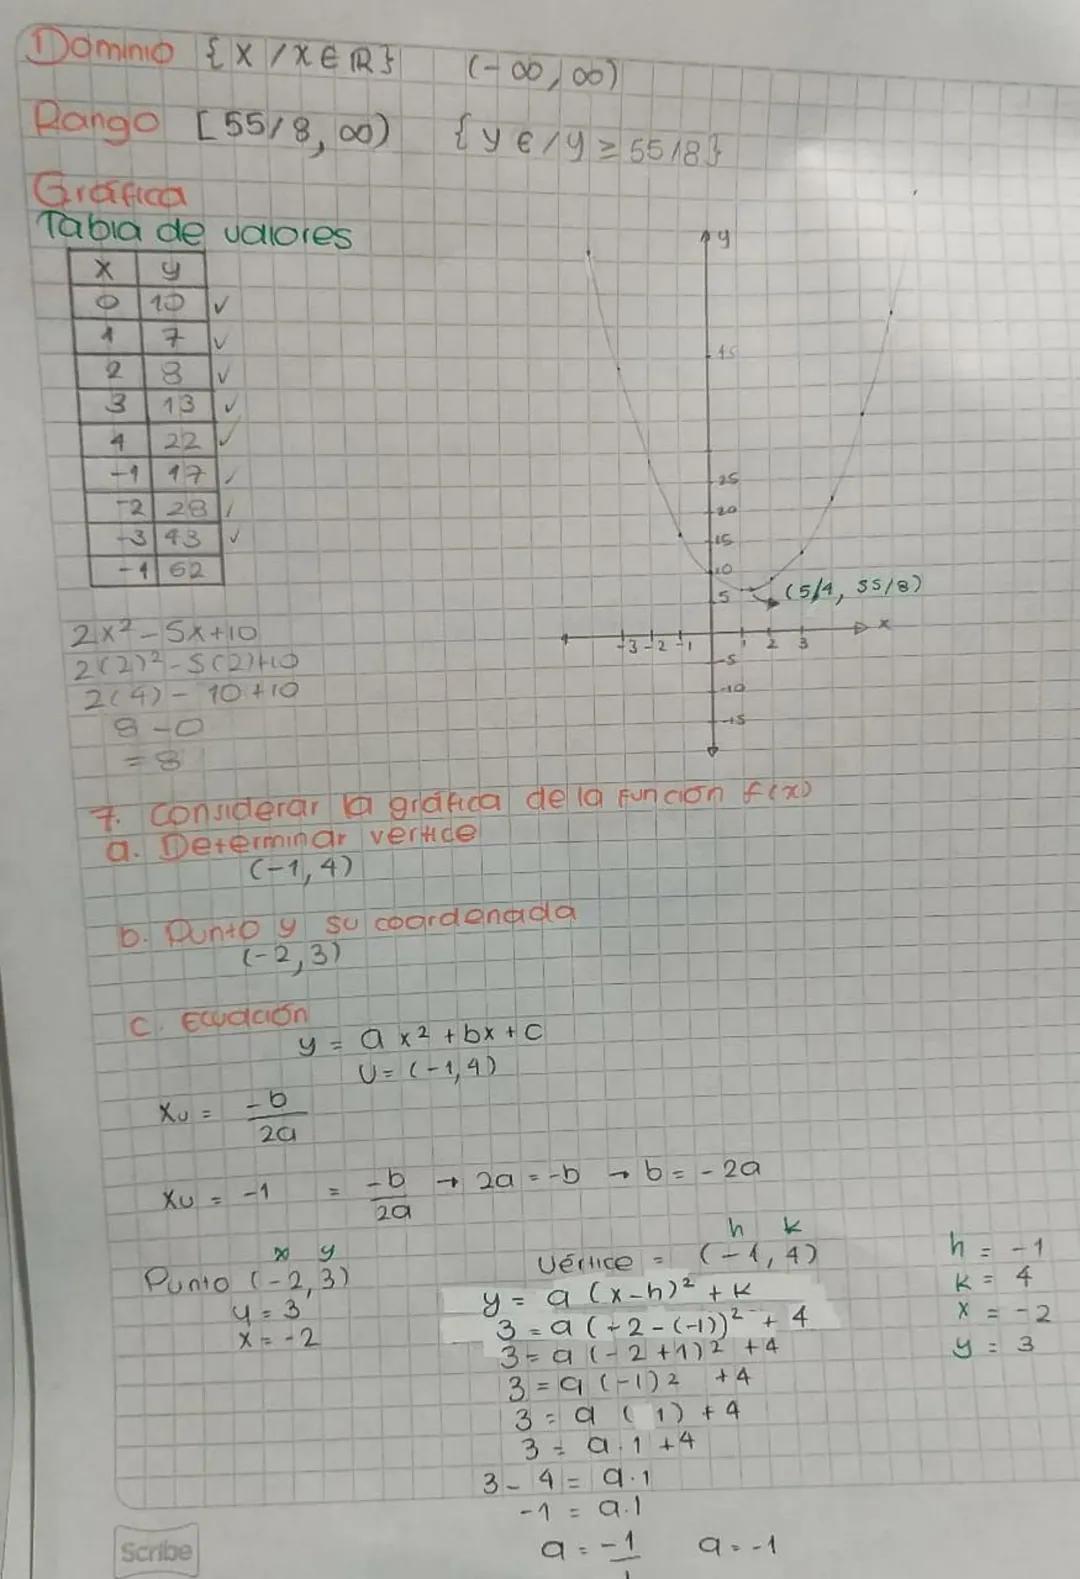 Dominio {x / x ∈ ℝ} (-∞, ∞)
Rango [55/8, ∞) {y ∈ / y ≥ 55/8}
Gráfica
Tabla de valores
x y
0 10 ✓
1 7 ✓
2 8 ✓
3 13 ✓
4 22 ✓
-1 17 ✓
-2 28 ✓
-3 43 ✓
-4 62
y
45
25
20
15
10
5
(5/4, 55/8)
-3 -2 -1 1 2 3 x
-5
-10
-15
2x² - 5x + 10
2(2)² - 5(2)+10
2(4) - 10 + 10
8 - 0
= 8
7. Considerar la gráfica de la función f(x)
a. Determinar vertice
(-1, 4)
b. Punto y su coordenada
(-2, 3)
c. Ecuación
y = ax² + bx + c
V = (-1, 4)
xv = -b/2a
xv = -1 = -b/2a → 2a = -b → b = -2a
x y
Punto (-2, 3)
y = 3
x = -2
h k
Vértice = (-1, 4)
y = a (x-h)² + k
3 = a (-2 - (-1))² + 4
3 = a (-2 + 1)² + 4
3 = a (-1)² + 4
3 = a (1) + 4
3 = a . 1 + 4
3 - 4 = a . 1
-1 = a . 1
a = -1/1 a = -1
h = -1
k = 4
x = -2
y = 3
Scribe